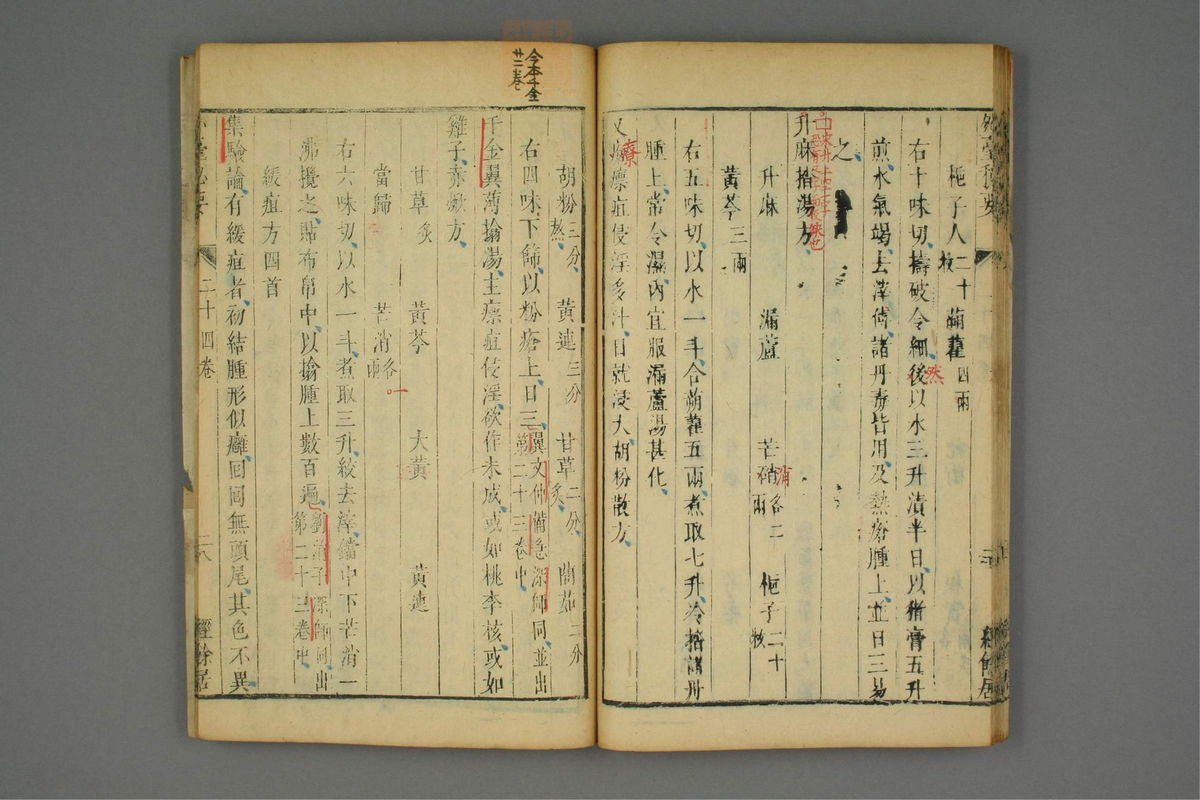 梔子人二十枚 蒴藋四兩
右十味切擣破令細後以水三升漬半日以猪膏五升
煎水氣竭去滓傅諸丹毒皆用及熱瘡腫上並日三易
之
升麻搨湯方
升麻 漏蘆 芒硝各二兩 梔子二十枚
黃芩三兩
右五味切以水一斗合蒴藋五兩煮取七升冷搨諸丹
腫上常令濕內宜服漏蘆湯甚化
又療瘭疽侵淫多汁日就浸大胡粉散方
今本千金
廿二卷
胡粉三分熬 黃連三分 甘草二分炙 䕡茹二分
右四味下篩以粉瘡上日三
翼文仲備急深師同並出
第二十三卷中
千金翼薄搨湯主瘭疽侵淫欲作未成或如桃李核或如
雞子赤㷉方
甘草炙 黃芩 大黃 黃連
當歸 芒消各一兩
右六味切以水一斗煮取三升絞去滓鐺中下芒消一
沸攪之貼布帛中以搨腫上數百遍
劉涓子深師同出
第二十三卷中
緩疽方四首
集驗論有緩疽者初結腫形似癰回回無頭尾其色不異
外臺秘要 二十四卷 經餘居